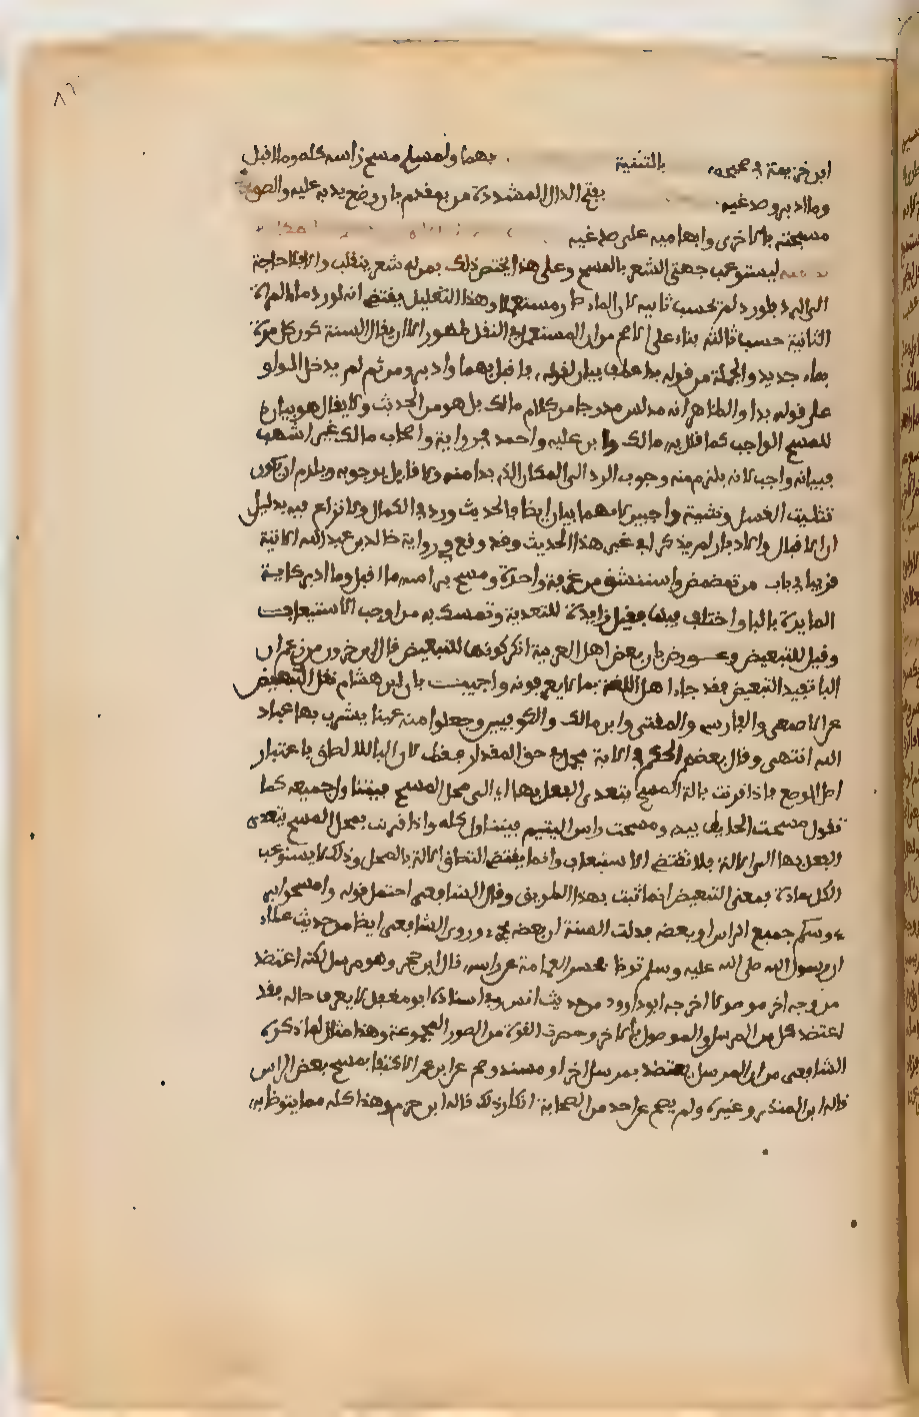 ٨٦
ابن خزيمة في صحيحه بالتثنية بهما ولمسلم مسح راسه كله وما اقبل
وما ادبر وصدغيه بفتح الدال المشددة من بمقدم بان وضع يديه عليه والصق
مسبحته بالاخرى وابهاميه على صدغيه
ليستوعب جهتي الشعر بالمسح وعلى هذا يختص ذلك بمن له شعر ينقلب والا فلا حاجة
الى الرد فلو رد لم تحسب ثانية لان الماء صار مستعملا وهذا التعليل يقتضي انه لو رد ماء المرة
الثانية حسب ثالثة بناء على الاصح من ان المستعمل في النفل طهور الا ان يقال السنة كون كل مرة
بماء جديد والجملة من قوله بدا عطف بيان لقوله فاقبل بهما وادبر ومن ثم لم يدخل الواو
على قوله بدا والظاهر انه مدلس مدرجا من كلام مالك بل هو من الحديث ولا يقال هو بيان
للمسح الواجب كما قال به مالك وابن علية واحمد في رواية واصحاب مالك غير اشهب
فبيانه واجب لانه يلزم منه وجوب الرد الى المكان الذي بدا منه ولا قايل بوجوبه ويلزم ان يكون
تثليث الغسل وتثنيته واجبين لانهما بيان ايضا فالحديث ورد في الكمال ولا نزاع فيه بدليل
ان الاقبال والادبار لم يذكر في غير هذا الحديث وقد وقع في رواية خالد بن عبد الله الاتية
قريبا في باب من تمضمض واستنشق من غرفة واحدة ومسح براسه ما اقبل وما ادبر كاية
المايدة بالبا واختلف فيها فقيل زايدة للتعدية وتمسك به من اوجب الاستيعاب
وقيل للتبعيض وعورض بان بعض اهل العربية انكر كونها للتبعيض قال ابن برهان من زعم ان
البا تفيد التبعيض فقد جاء اهل اللغة بما لا يعرفونه واجيب بان ابن هشام نقل التبعيض
عن الاصمعي والفارسي والقتبي وابن مالك والكوفيين وجعلوا منه عينا يشرب بها عباد
الله انتهى وقال بعضهم الحكم في الاية مجمل في حق المقدار فقط لان البا للالصاق باعتبار
اصل الوضع فاذا قرنت بالة المسح يتعدى الفعل بها الى محل المسح فيتناول جميعه كما
تقول مسحت الحايط بيدي ومسحت راس اليتيم فيتناول كله واذا قرنت بمحل المسح يتعدى
الفعل بها الى الالة فلا تقتضي الاستيعاب وانما يقتضي التصاق الالة بالمحل وذلك لا يستوعب
الكل عادة فمعنى التبعيض انما ثبت بهذا الطريق وقال الشافعي احتمل قوله وامسحوا
برءوسكم جميع الراس او بعضه فدلت السنة ان بعضه يجزء وروى الشافعي ايضا من حديث عطاء
ان رسول الله صلى الله عليه وسلم توضا فحسر العمامة عن راسه قال ابن حجر وهو مرسل لكنه اعتضد
من وجه اخر موصولا اخرجه ابو داوود من حديث انس وفي اسناده ابو معقل لا يعرف حاله فقد
اعتضد كل من المرسل والموصول بالاخر وحصرت القوة من الصور المجموعة وهذا مثال لما ذكره
الشافعي من ان المرسل يعتضد بمرسل اخر او مسند وصح عن ابن عمر الاكتفا بمسح بعض الراس
قاله ابن المنذر وغيره ولم يصح عن احد من الصحابة انكار ذلك قاله ابن حزم وهذا كله مما يتوضا به